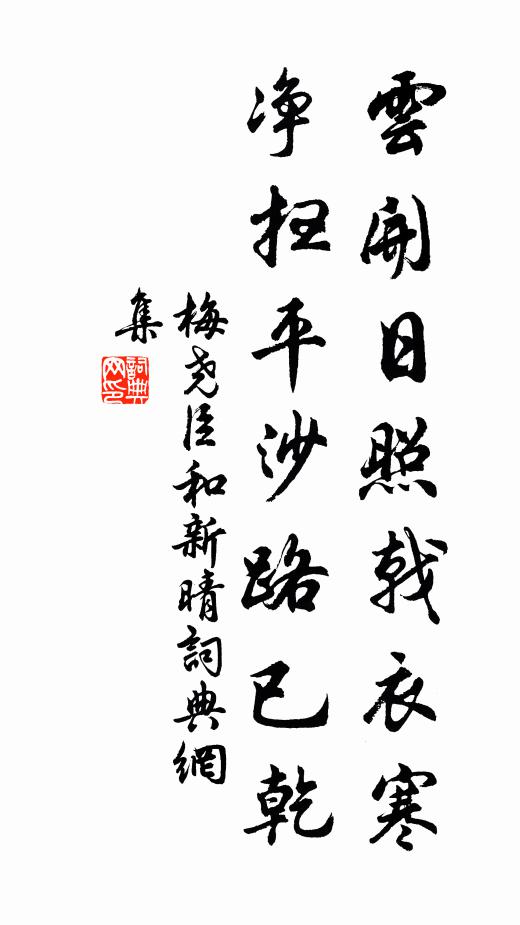 雲開日照戟衣寒
净扫平沙路已乾
梅尧臣和新晴詞典網
集
詞典網印